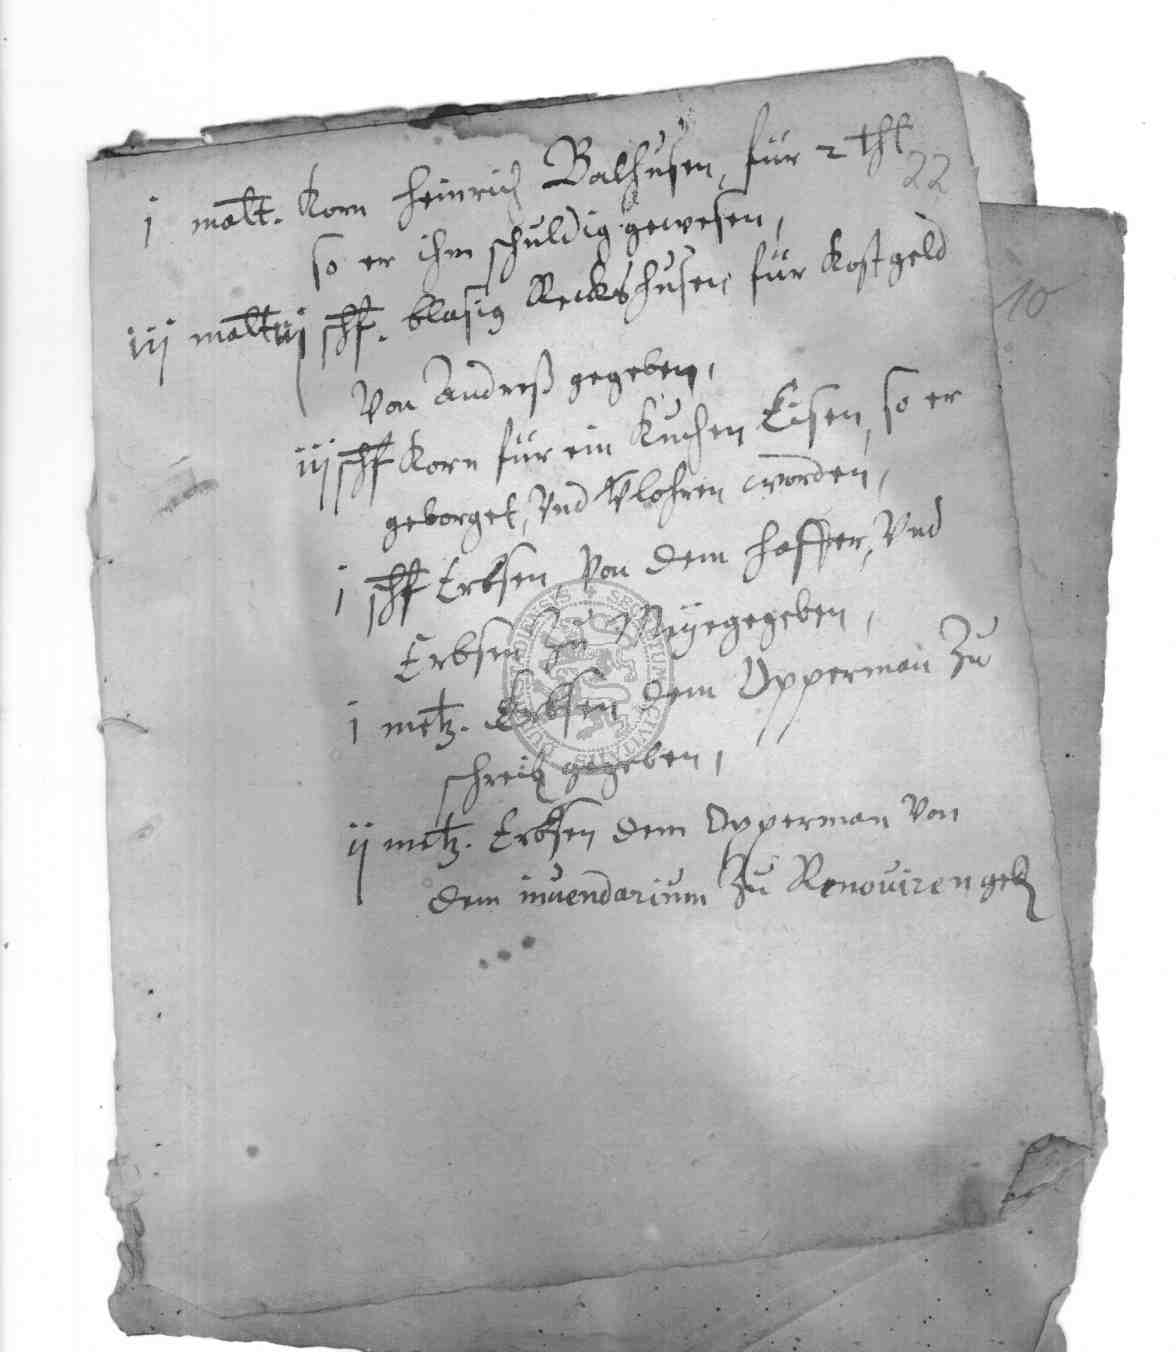 j malt. Korn Heinrich Balhusen, für 2 thl
22
so er ihm schuldig gewesen,
iij malt iij schf. blasig Reckshusen, für Kostgeld
10
Von Andreß gegeben,
iij schf Korn für ein Kuchen Eisen, so er
geborget, Vnd Vlohren worden,
j schf Erbsen, Von dem haffer, Vnd
Erbsen Zu gegeben,
j metz. Erbsen dem Opperman Zu
schreib gegeben,
ij metz. Erbsen dem Opperman Von
dem inuendarium Zu Renouiren geb